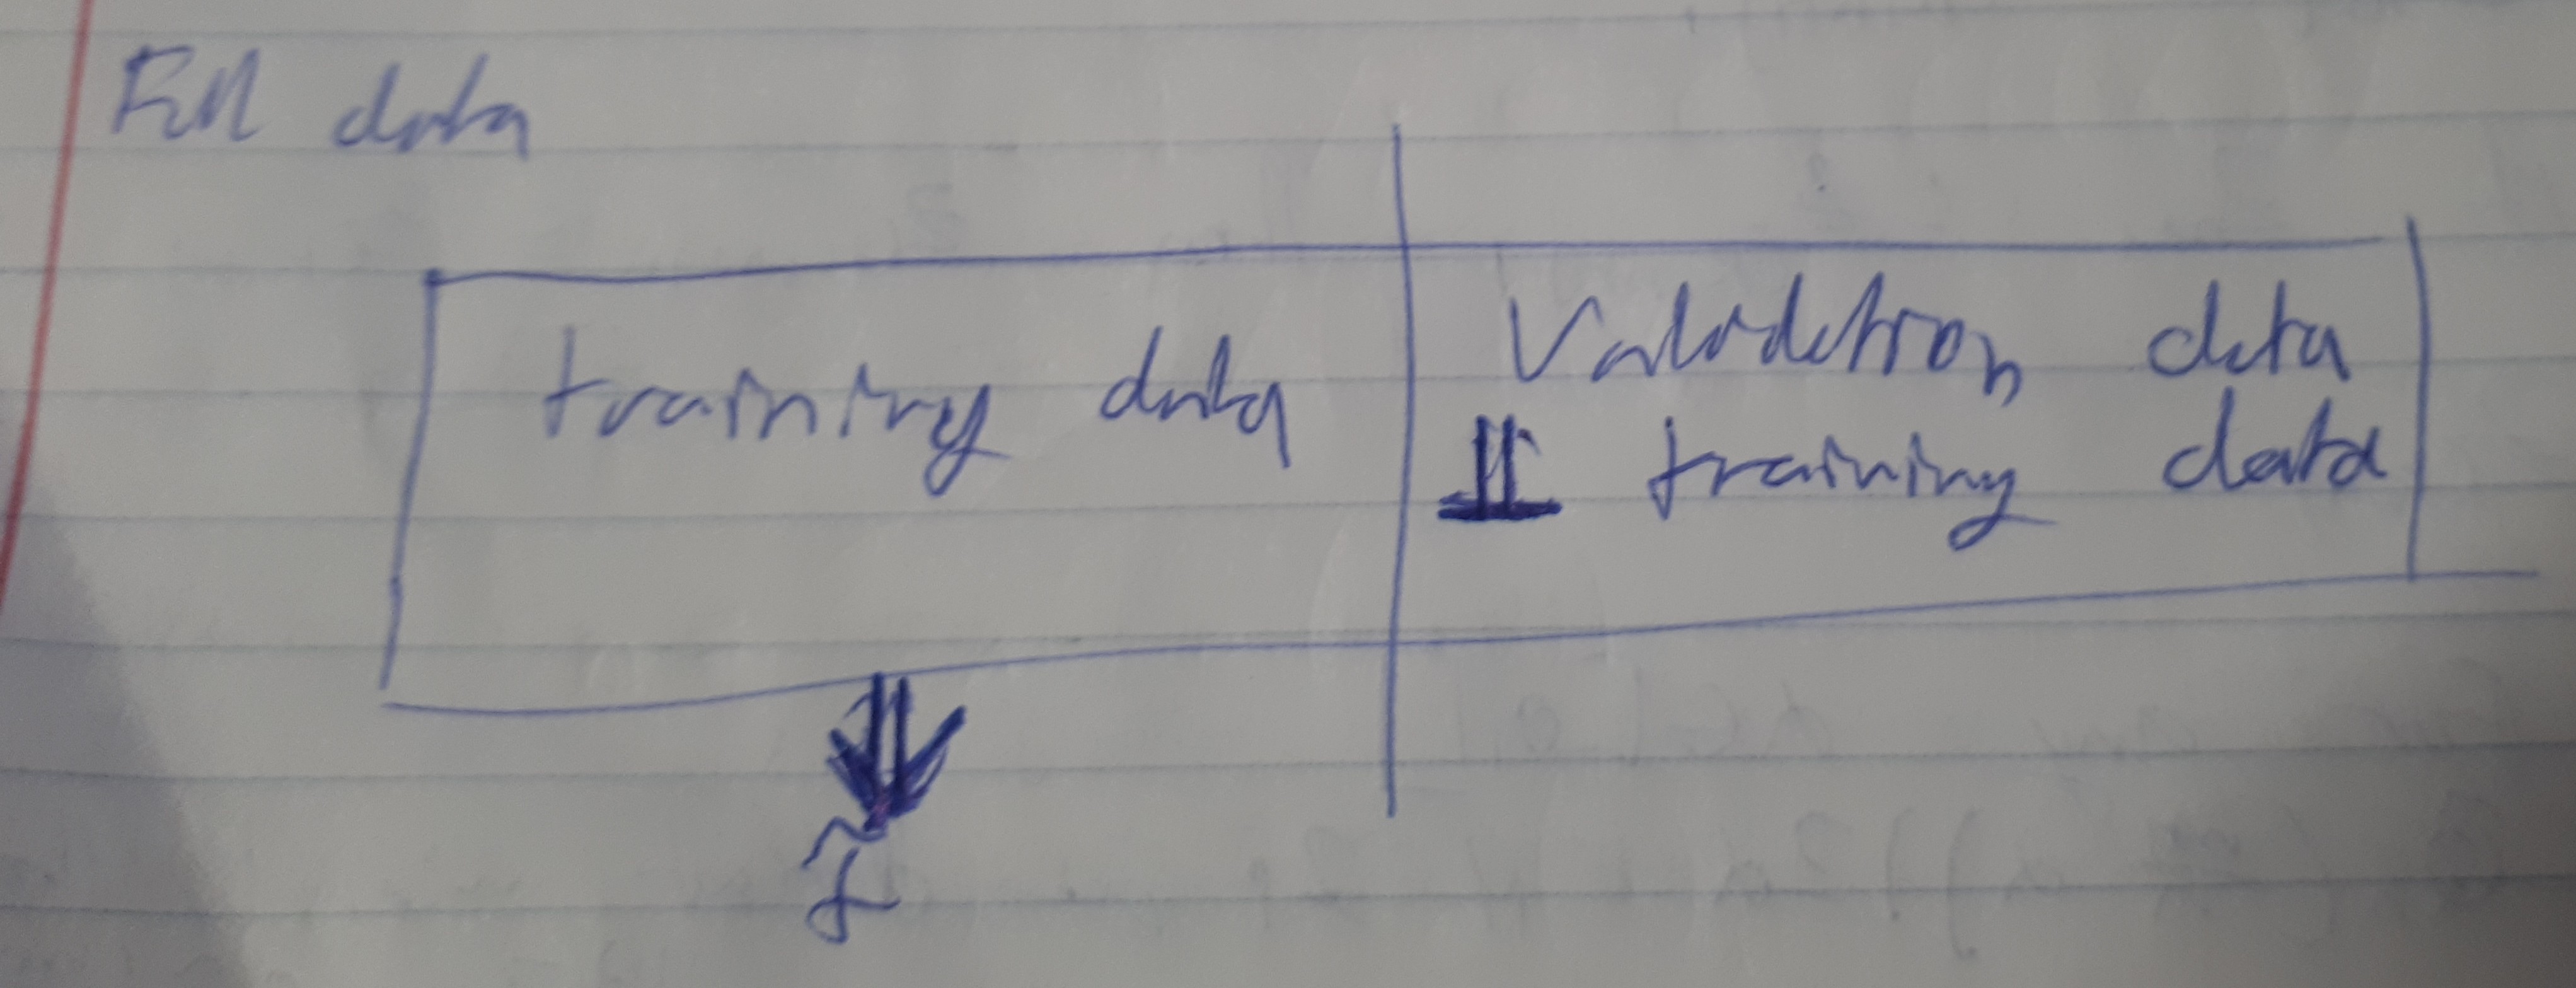 Full data
training data
Validation data
⊥⊥ training data
f̂